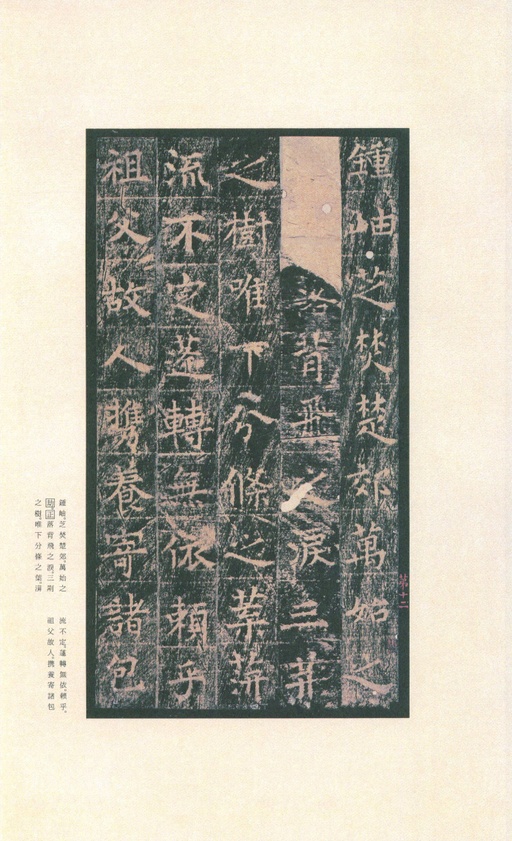 鍾岫芝焚楚郊萬始之
落背飛之淚三荆
之樹唯下分條之葉蓱
流不定蓬轉無依賴乎
祖父故人㩦養寄諸包
第十二
鍾岫芝焚楚郊萬始之
落背飛之淚三荆
之樹唯下分條之葉蓱
流不定蓬轉無依賴乎
祖父故人㩦養寄諸包